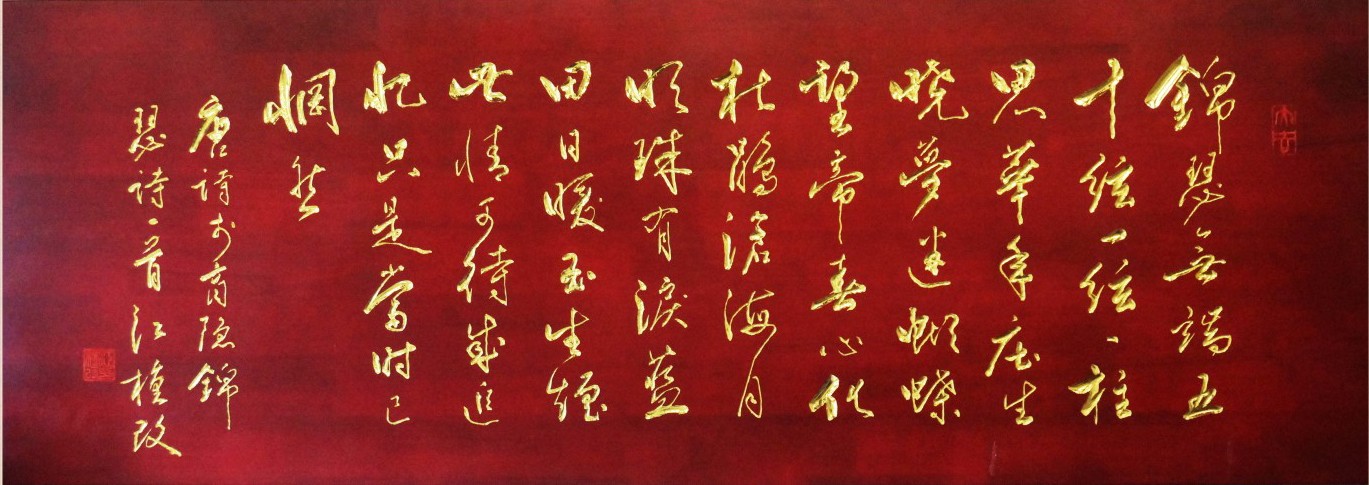 錦瑟無端五
十絃一絃一柱
思華年庄生
曉夢迷蝴蝶
望帝春心化
杜鵑滄海月
明珠有淚藍
田日暖玉生煙
此情可待成追
忆只是當時已
惘然
唐詩李商隐錦
瑟詩一首江